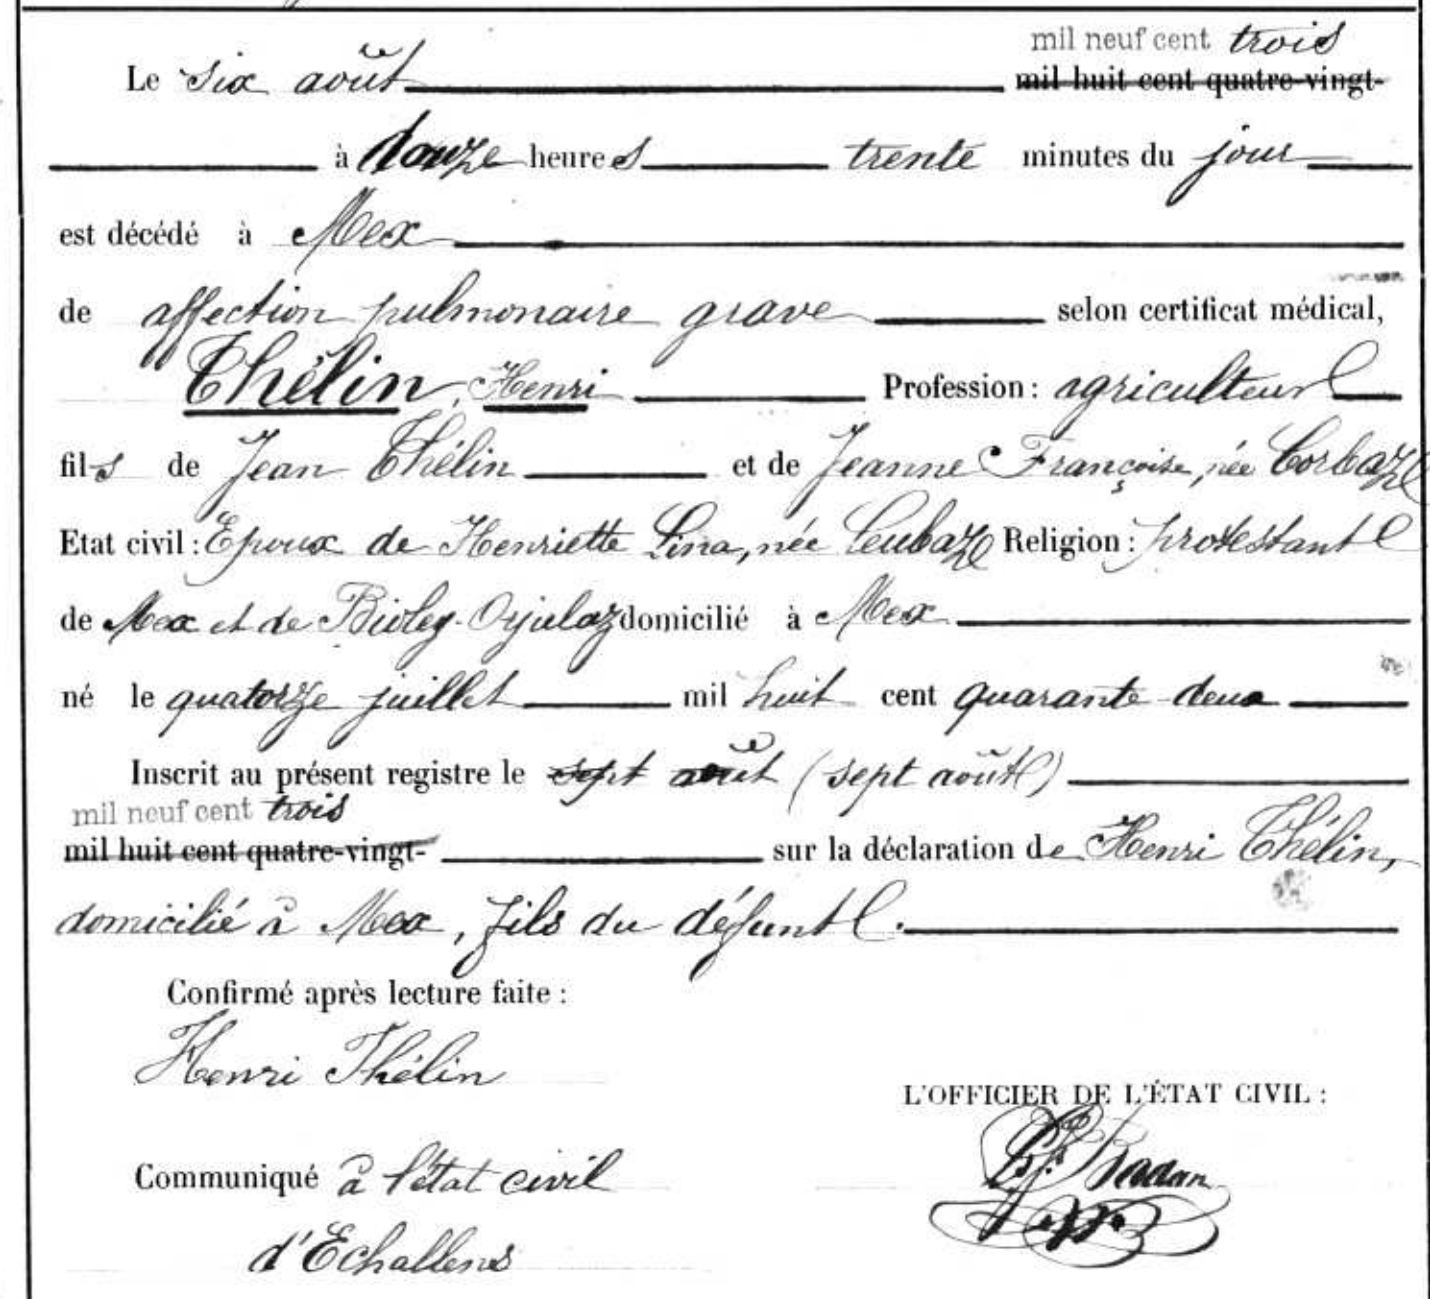 mil neuf cent trois
Le six août mil huit cent quatre-vingt-
à douze heures trente minutes du jour
est décédé à Mex
de affection pulmonaire grave selon certificat médical,
Thélin, Henri Profession : agriculteur
fils de Jean Thélin et de Jeanne Françoise, née Corbaz
Etat civil : Epoux de Henriette Lina, née Religion : protestant
de Mex et de Bioley-Orjulaz domicilié à Mex
né le quatorze juillet mil huit cent quarante deux
Inscrit au présent registre le sept août (sept août)
mil neuf cent trois
mil huit cent quatre-vingt- sur la déclaration de Henri Thélin,
domicilié à Mex, fils du défunt.
Confirmé après lecture faite :
Henri Thélin
L'OFFICIER DE L'ÉTAT CIVIL :
Communiqué à l'état civil
d'Echallens